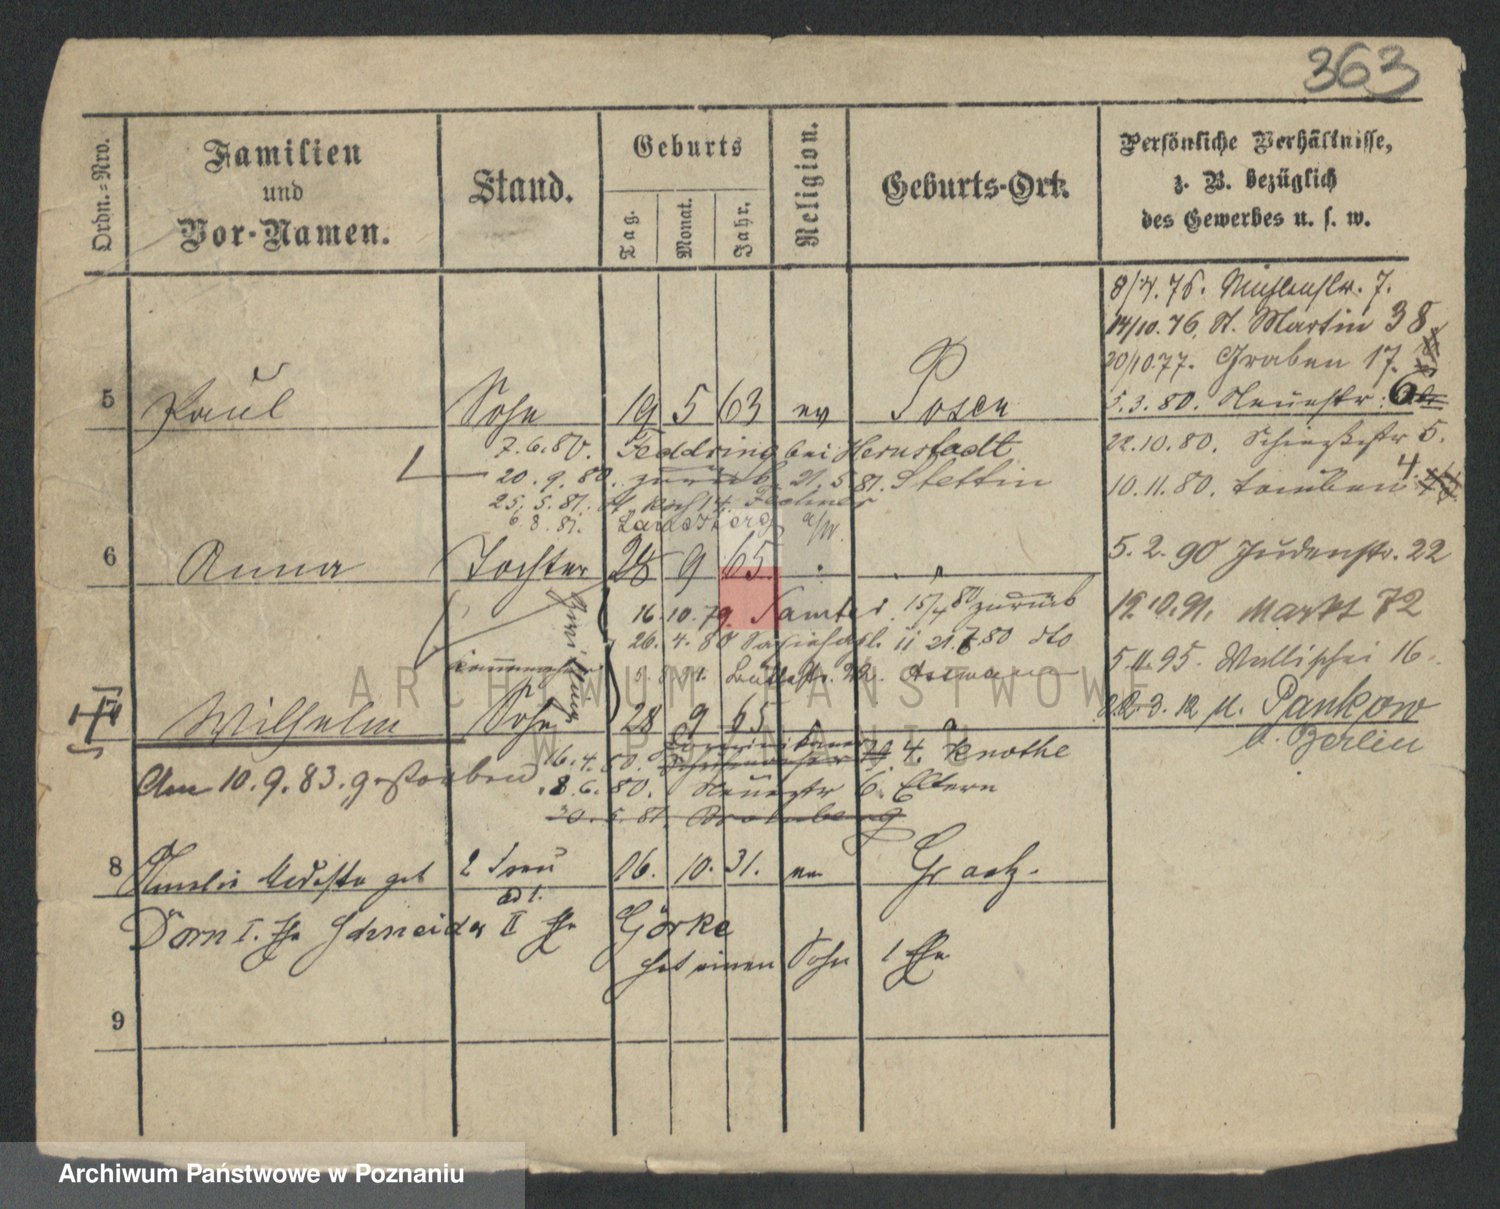 363
Ordn.-Nro.
Familien
und
Vor-Namen.
Stand.
Geburts
Tag.
Monat.
Jahr.
Religion.
Geburts-Ort.
Persönliche Verhältnisse,
z. B. bezüglich
des Gewerbes u. s. w.
8/7. 76. Mühlenstr. 7.
14/10. 76. St. Martin 38
20/10 77. Graben 17.
5 Paul Sohn 19 5 63 ev Posen
5. 3. 80. Neuestr. 6
7. 6. 80. bei Hernstadt
22. 10. 80. Schiessstr 5.
20. 9. 80. zurück 21. 5. 81. Stettin
10. 11. 80. 4
25. 5. 81.
6. 8. 81. Landsberg a/W.
6 Anna Tochter 28 9 65 " "
5. 2. 90 Judenstr. 22
16. 10. 79. Samter 15/4 80 zurück
19. 10. 91. Markt 72
26. 4. 80 11 21. 7. 80 dto
5. 11. 95. Wallischei 16
7 Wilhelm Sohn 28 9 65 " "
3. 12 n. Pankow
b. Berlin
16. 4. 80. 4. Knothe
Am 10. 9. 83. gestorben
8. 6. 80. Neuestr 6. Eltern
30. 5. 81. Bromberg
8 Amalie Modesta geb 2 Frau 06. 10. 31. ev Graetz.
ad 1.
Dorn I. Ehe Schneider II Ehe Görke
hat einen Sohn 1 Ehe
9
ARCHIWUM PAŃSTWOWE
W POZNANIU
Archiwum Państwowe w Poznaniu